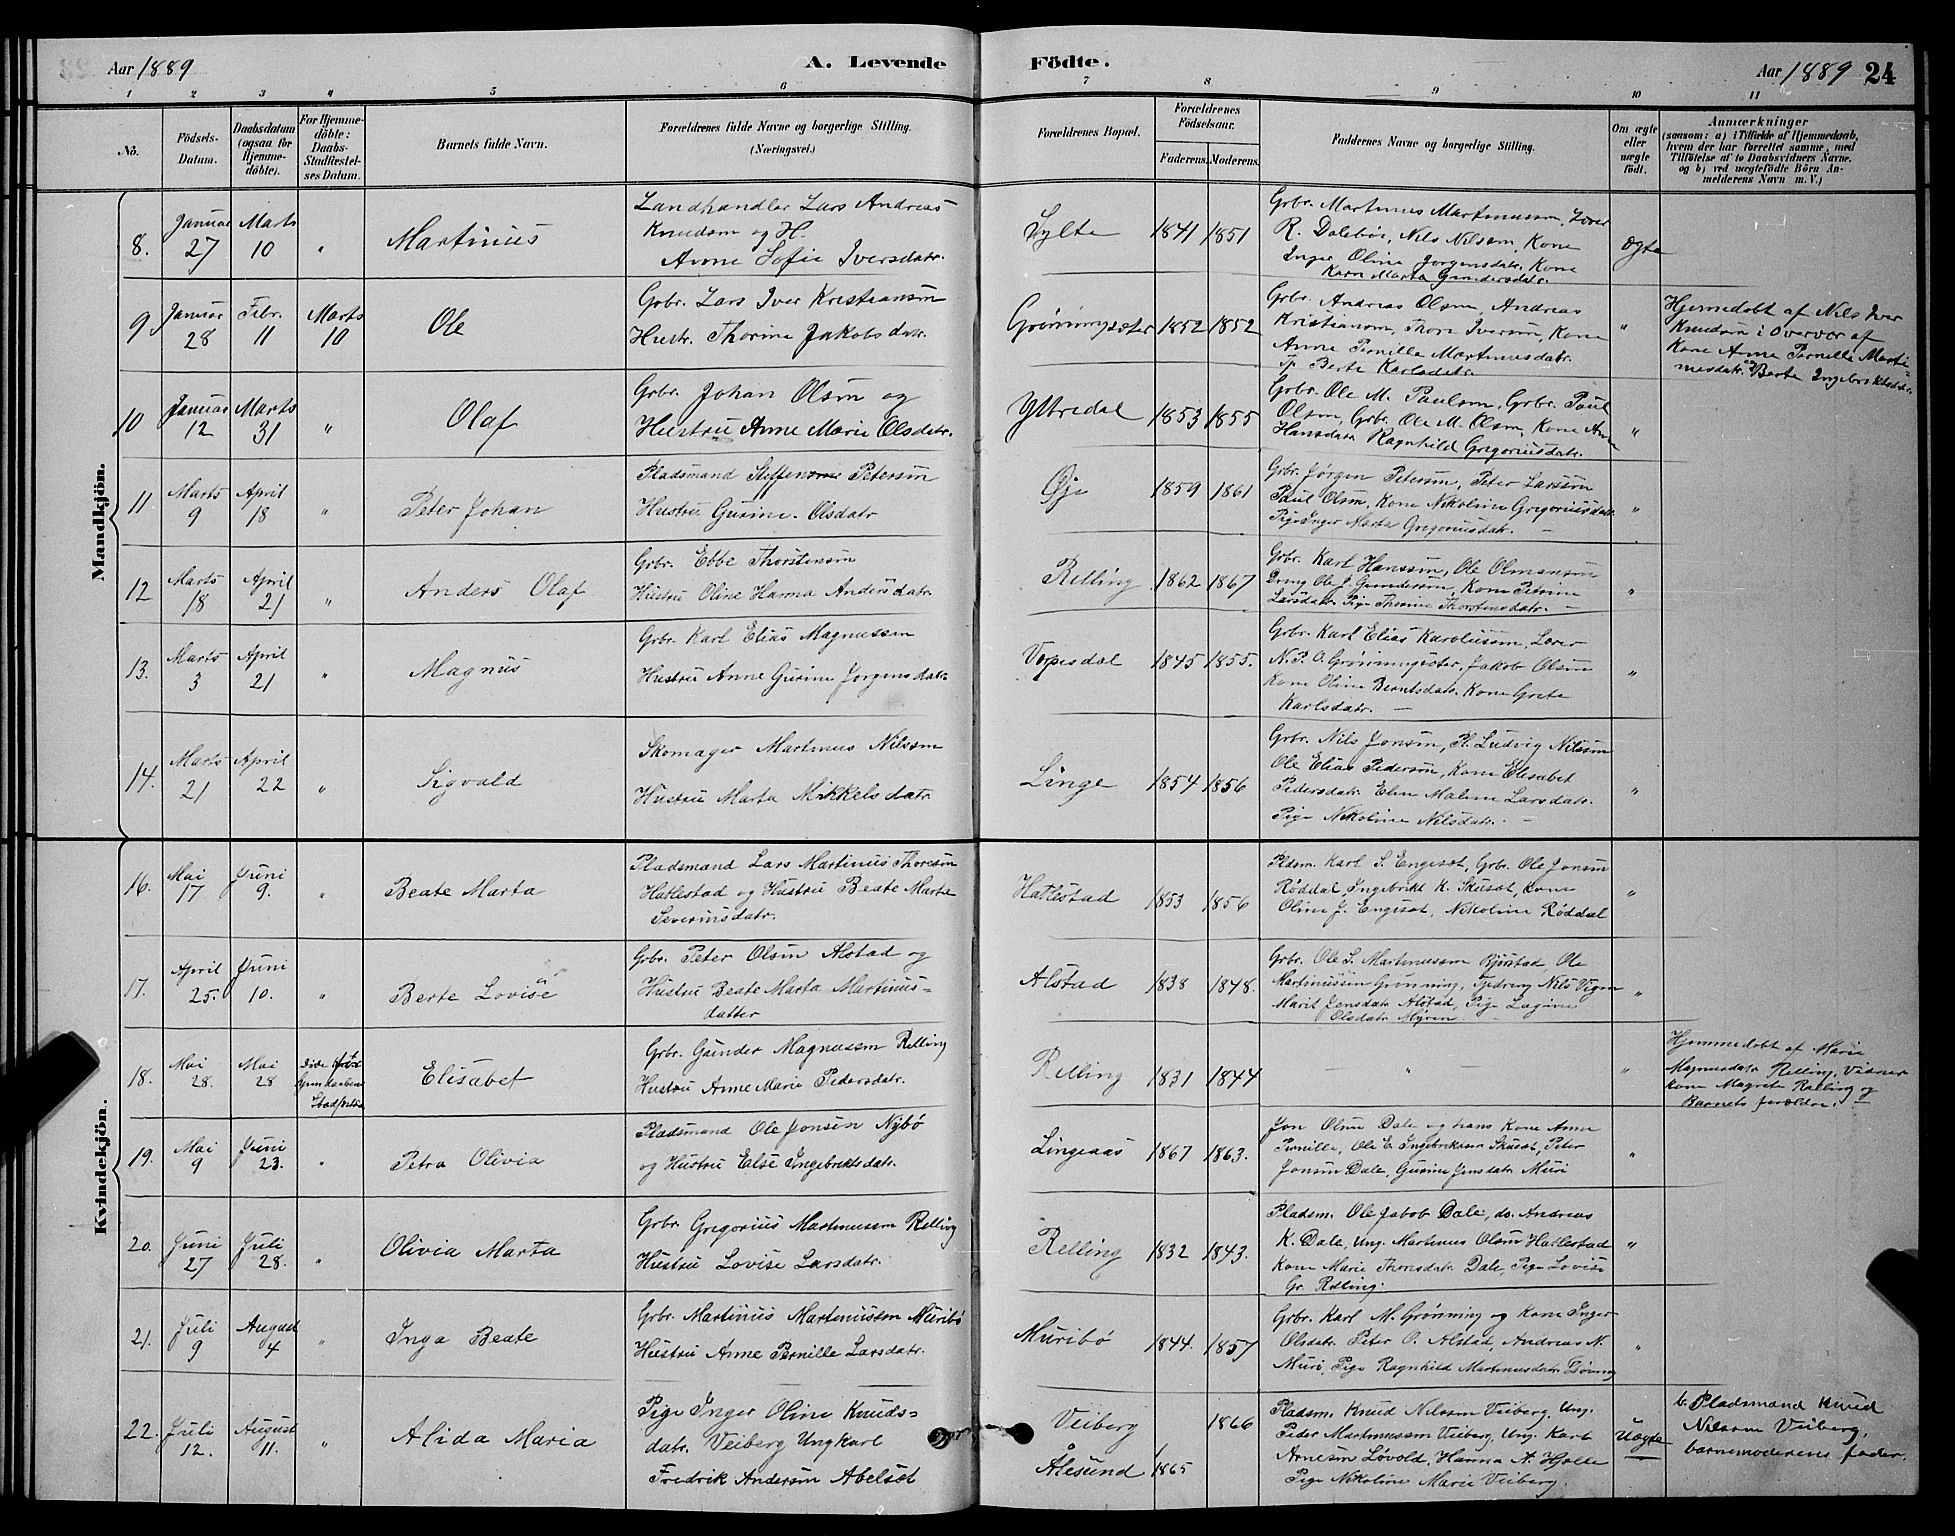 Aar 1889
A. Levende Födte.
Aar 1889 24
1 2 3 4 5 6 7 8 9 10 11
No.
Födsels-Datum.
Daabsdatum (ogsaa for Hjemmedöbte).
For Hjemmedöbte: Daabs-Stadfæstelses Datum.
Barnets fulde Navn.
Forældrenes fulde Navne og borgerlige Stilling.
(Næringsvei.)
Forældrenes Bopæl.
Forældrenes Födselsaar.
Faderens. Moderens.
Faddernes Navne og borgerlige Stilling.
Om ægte eller uægte födt.
Anmærkninger
(saasom: a) i Tilfælde af Hjemmedaab, hvem der har forrettet samme, med Tilföielse af to Daabsvidners Navne. og b) ved uægtefödte Börn Anmelderens Navn m. V.)
Mandkjön.
8. Januar 27 Marts 10 " Martinus
Landhandler Lars Andreas
Knudsen og H.
Anne Sofie Iversdatr.
Sylte 1841 1851
Grbr. Martinus Martinussen, Lærer
R. Dalebøe, Nils Nilsen, Kone
Inger Oline Jørgensdatr. Kone
Karn Marta Gundersdatr.
Ægte
9 Januar 28 Febr. 11 Marts 10 Ole
Grbr. Lars Iver Kristiansen
Hustr. Thorine Jakobsdatr.
Grønningsæter 1852 1852
Grbr. Andreas Olsen, Andreas
Kristiansen, Thore Iversen, Kone
Anne Pernille Martinusdatr.
Berte Karlsdatr.
"
Hjemedøbt af Nils Iver
Knudsen i Overvær af
Kone Anne Pernille Marti-
nusdatr. Berte
10 Januar 12 Marts 31 " Olaf
Grbr. Johan Olsen og
Hustru Anne Marie Olsdatr.
Yttredal 1853 1855
Grbr. Ole M. Paulsen, Grbr. Paul
Olsen, Grbr. Ole M. Olsen, Kone Ane
Hansdatr. Ragnhild Gregoriusdatr.
"
11 Marts 9 April 18 " Peter Johan
Pladsmand Steffen Petersen
Hustru Gurine Olsdatr
Øje 1859 1861
Grbr. Jörgen Petersen, Peter Larssen
Paul Olsen, Kone Nikoline Gregoriusdatr.
Pige Inger Marta Gregoriusdatr. -
"
12 Marts 18 April 21 " Anders Olaf
Grbr. Ebbe Thorstensen
Hustru Oline Hanna Andersdatr.
Relling 1862 1867
Grbr. Karl Hanssen, Ole Olmansen
Dreng Ole J. Gundersen, Kone Petrine
Larsdatr. Pige Thorine Thorstensdatr. -
"
13. Marts 3 April 21 " Magnus
Grbr. Karl Elias Magnussen
Hustru Anne Gurine Jørgensdatr.
Verpesdal 1845 1855.
Grbr. Karl Elias Karolussen, Lærer
N. P. O. Grønningsæter, Jakob Olsen
Kone Oline Berntsdatr. Kone Grete
Karlsdatr. -
"
14. Marts 21 April 22 " Sigvald
Skomager Martinus Nilssen
Hustru Marta Mikkelsdatr.
Linge 1854 1856
Grbr. Nils Jonsen, Pl. Ludvig Nilssen
Ole Elias Pedersen, Kone Elisabet
Pedersdatr. Elen Maline Larsdatr.
Pige Nikoline Nilsdatr. -
"
Kvindekjön.
16. Mai 17 Juni 9. " Beate Marta
Pladsmand Lars Martinus Thoresen
Hatlestad og Hustru Beate Marta
Severinsdatr.
Hatlestad 1853 1856
Pldsm. Karl S. Engeset, Grbr. Ole Jonsen
Røddal, Ingebrikt K. Skuset, Kone
Oline J. Engeset, Nikoline Røddal
"
17. April 25. Juni 10. " Berte Lovise
Grbr. Peter Olsen Alstad og
Hustru Beate Marta Martinus-
datter
Alstad 1838 1848.
Grbr. Ole S. Martinussen Bjørstad, Ole
Martinussen Grønning, Nils Vigen
Marit Jensdatr. Alstad, Pige Lagine
Olsdatr. Myren.
"
18. Mai 28. Mai 28 Døde før Hjemdaabens Stadfæstelse Elisabet
Grbr. Gunder Magnussen Relling
Hustru Anne Marie Pedersdatr.
Relling 1831 1844
- " -
"
Hjemmedøbt af Marie
Magnusdatr. Relling, Vidner
Kone Magret Relling og
Barnets forældre.
19. Mai 9 Juni 23. " Petra Olivia
Pladsmand Ole Jonsen Nybø
og Hustru Else Ingebriktsdatr.
Lingeaas 1867 1863.
Jon Olsen Dale og hans Kone Anne
Pernille, Ole E. Ingebriktsen Skuset, Peter
Jonsen Dale, Gurine Jensdatr. Muri
"
20. Juni 27 Juli 28. " Olivia Marta
Grbr. Gregorius Martinussen Relling
Hustru Lovise Larsdatr.
Relling 1832 1843.
Pladsm. Ole Jakob Dale, do. Andreas
K. Dale, Ung. Martinus Olsen Hatlestad
Kone Marie Thoresdatr. Dale, Pige Lovise
Gr. Relling.
"
21. Juli 9 August 4 " Inga Beate
Grbr. Martinus Martinussen Muribø
Hustru Anne Pernille Larsdatr.
Muribø 1844. 1857
Grbr. Karl M. Grønning og Kone Inger
Olsdatr. Peter O. Alstad, Andreas N.
Muri, Pige Ragnhild Martinusdatr. Døving
"
22. Juli 12. August 11. " Alida Maria
Pige Inger Oline Knuds-
datr. Veiberg Ungkarl
Fredrik Andersen Abelsæt
Veiberg 1866
Ålesund 1865
Pladsm. Knud Nilssen Veiberg, Ung.
Peder Martinussen Veiberg, Ung. Karl
Arnesen Løvold, Hanna A. Hjelle
Pige Nikoline Marie Veiberg.
Uægte
b. Pladsmand Knud
Nilssen Veiberg,
barnemoderens fader.